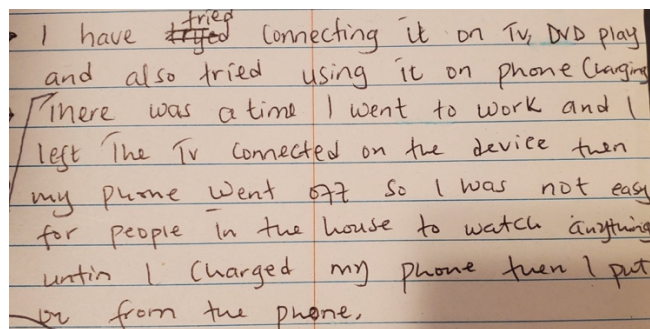 I have tried connecting it on Tv, DVD play
and also tried using it on phone Charging
There was a time I went to work and I
left The Tv Connected on the device then
my phone went off so I was not easy
for people in the house to watch anything
untin I Charged my phone then I put
on from the phone.